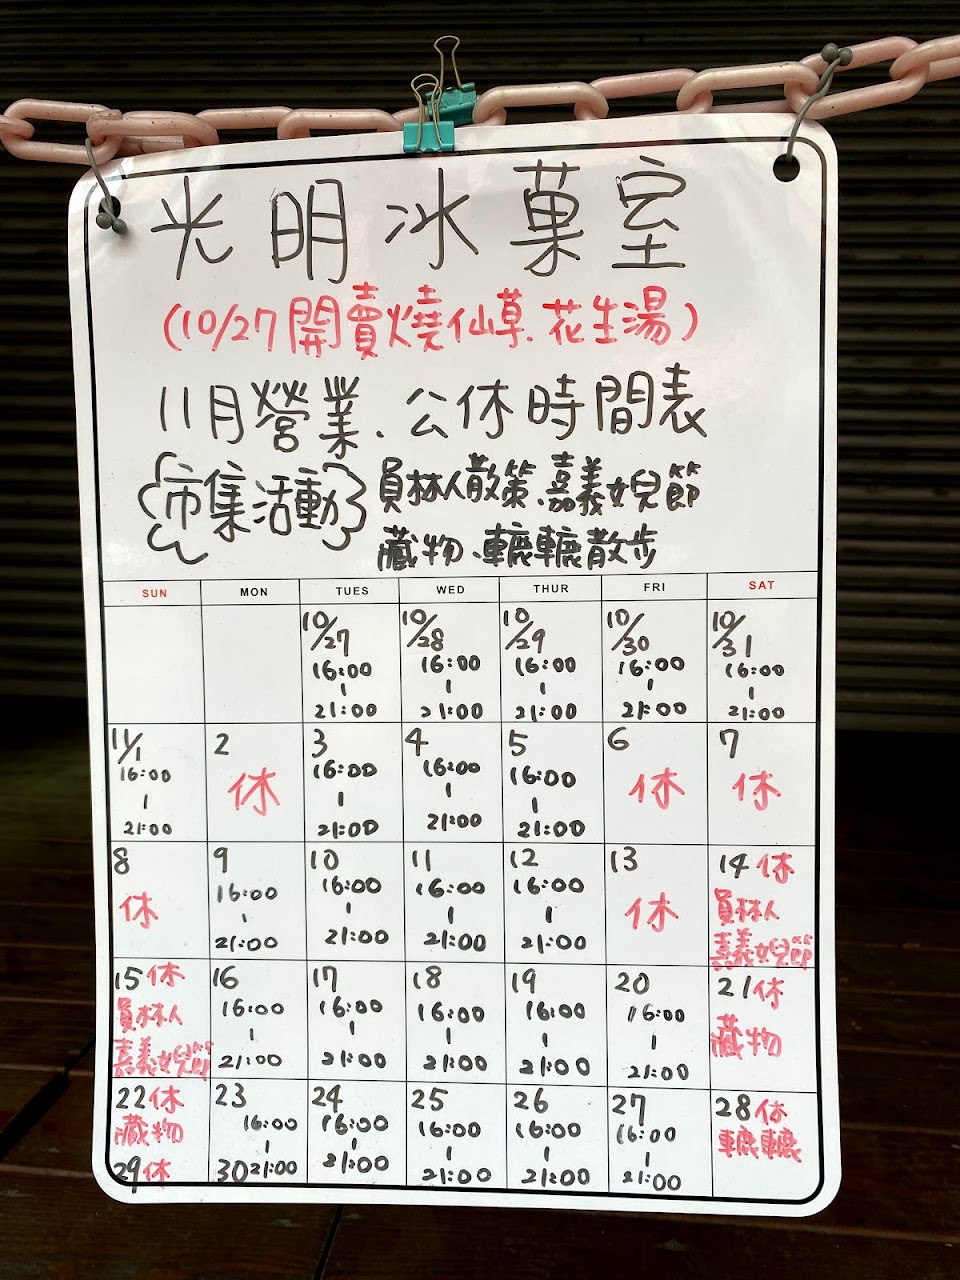 光明冰菓室
(10/27開賣燒仙草.花生湯)
11月營業.公休時間表
市集活動 員林人散策、嘉義女兒節
藏物、轆轆散步
SUN MON TUES WED THUR FRI SAT
10/27 10/28 10/29 10/30 10/31
16:00 16:00 16:00 16:00 16:00
| | | | |
21:00 21:00 21:00 21:00 21:00
11/1 2 3 4 5 6 7
16:00 休 16:00 16:00 16:00 休 休
| | | |
21:00 21:00 21:00 21:00
8 9 10 11 12 13 14休
休 16:00 16:00 16:00 16:00 休 員林人
| | | |
21:00 21:00 21:00 21:00 嘉義女兒節
15休 16 17 18 19 20 21休
員林人 16:00 16:00 16:00 16:00 16:00 藏物
| | | | |
嘉義女兒節 21:00 21:00 21:00 21:00 21:00
22休 23 24 25 26 27 28休
藏物 16:00 16:00 16:00 16:00 16:00 轆轆
| | | | |
29休 30 21:00 21:00 21:00 21:00 21:00